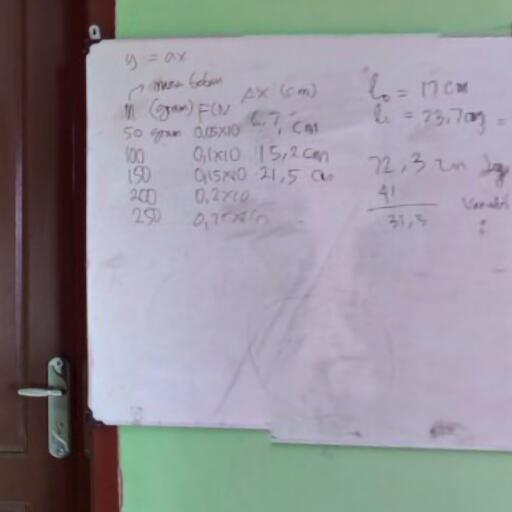 y = ax
massa beban
M (gram) F(N Δx (cm)
50 gram 0,05x10 6,7 cm
100 0,1x10 15,2 cm
150 0,15x10 21,5 cm
200 0,2x10
250
l₀ = 17 cm
l₁ = 23,7 cm =
72,3 cm
41
31,3